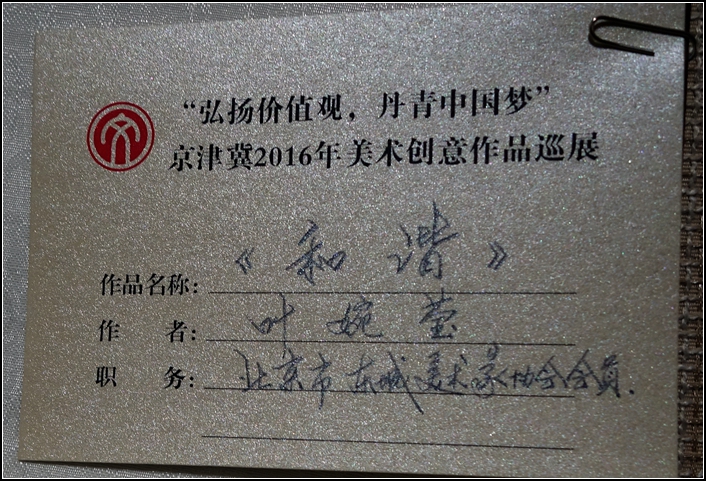 “弘扬价值观，丹青中国梦”
京津冀2016年美术创意作品巡展
作品名称：《和谐》
作 者：叶婉莹
职 务：北京市东城美术家协会会员.